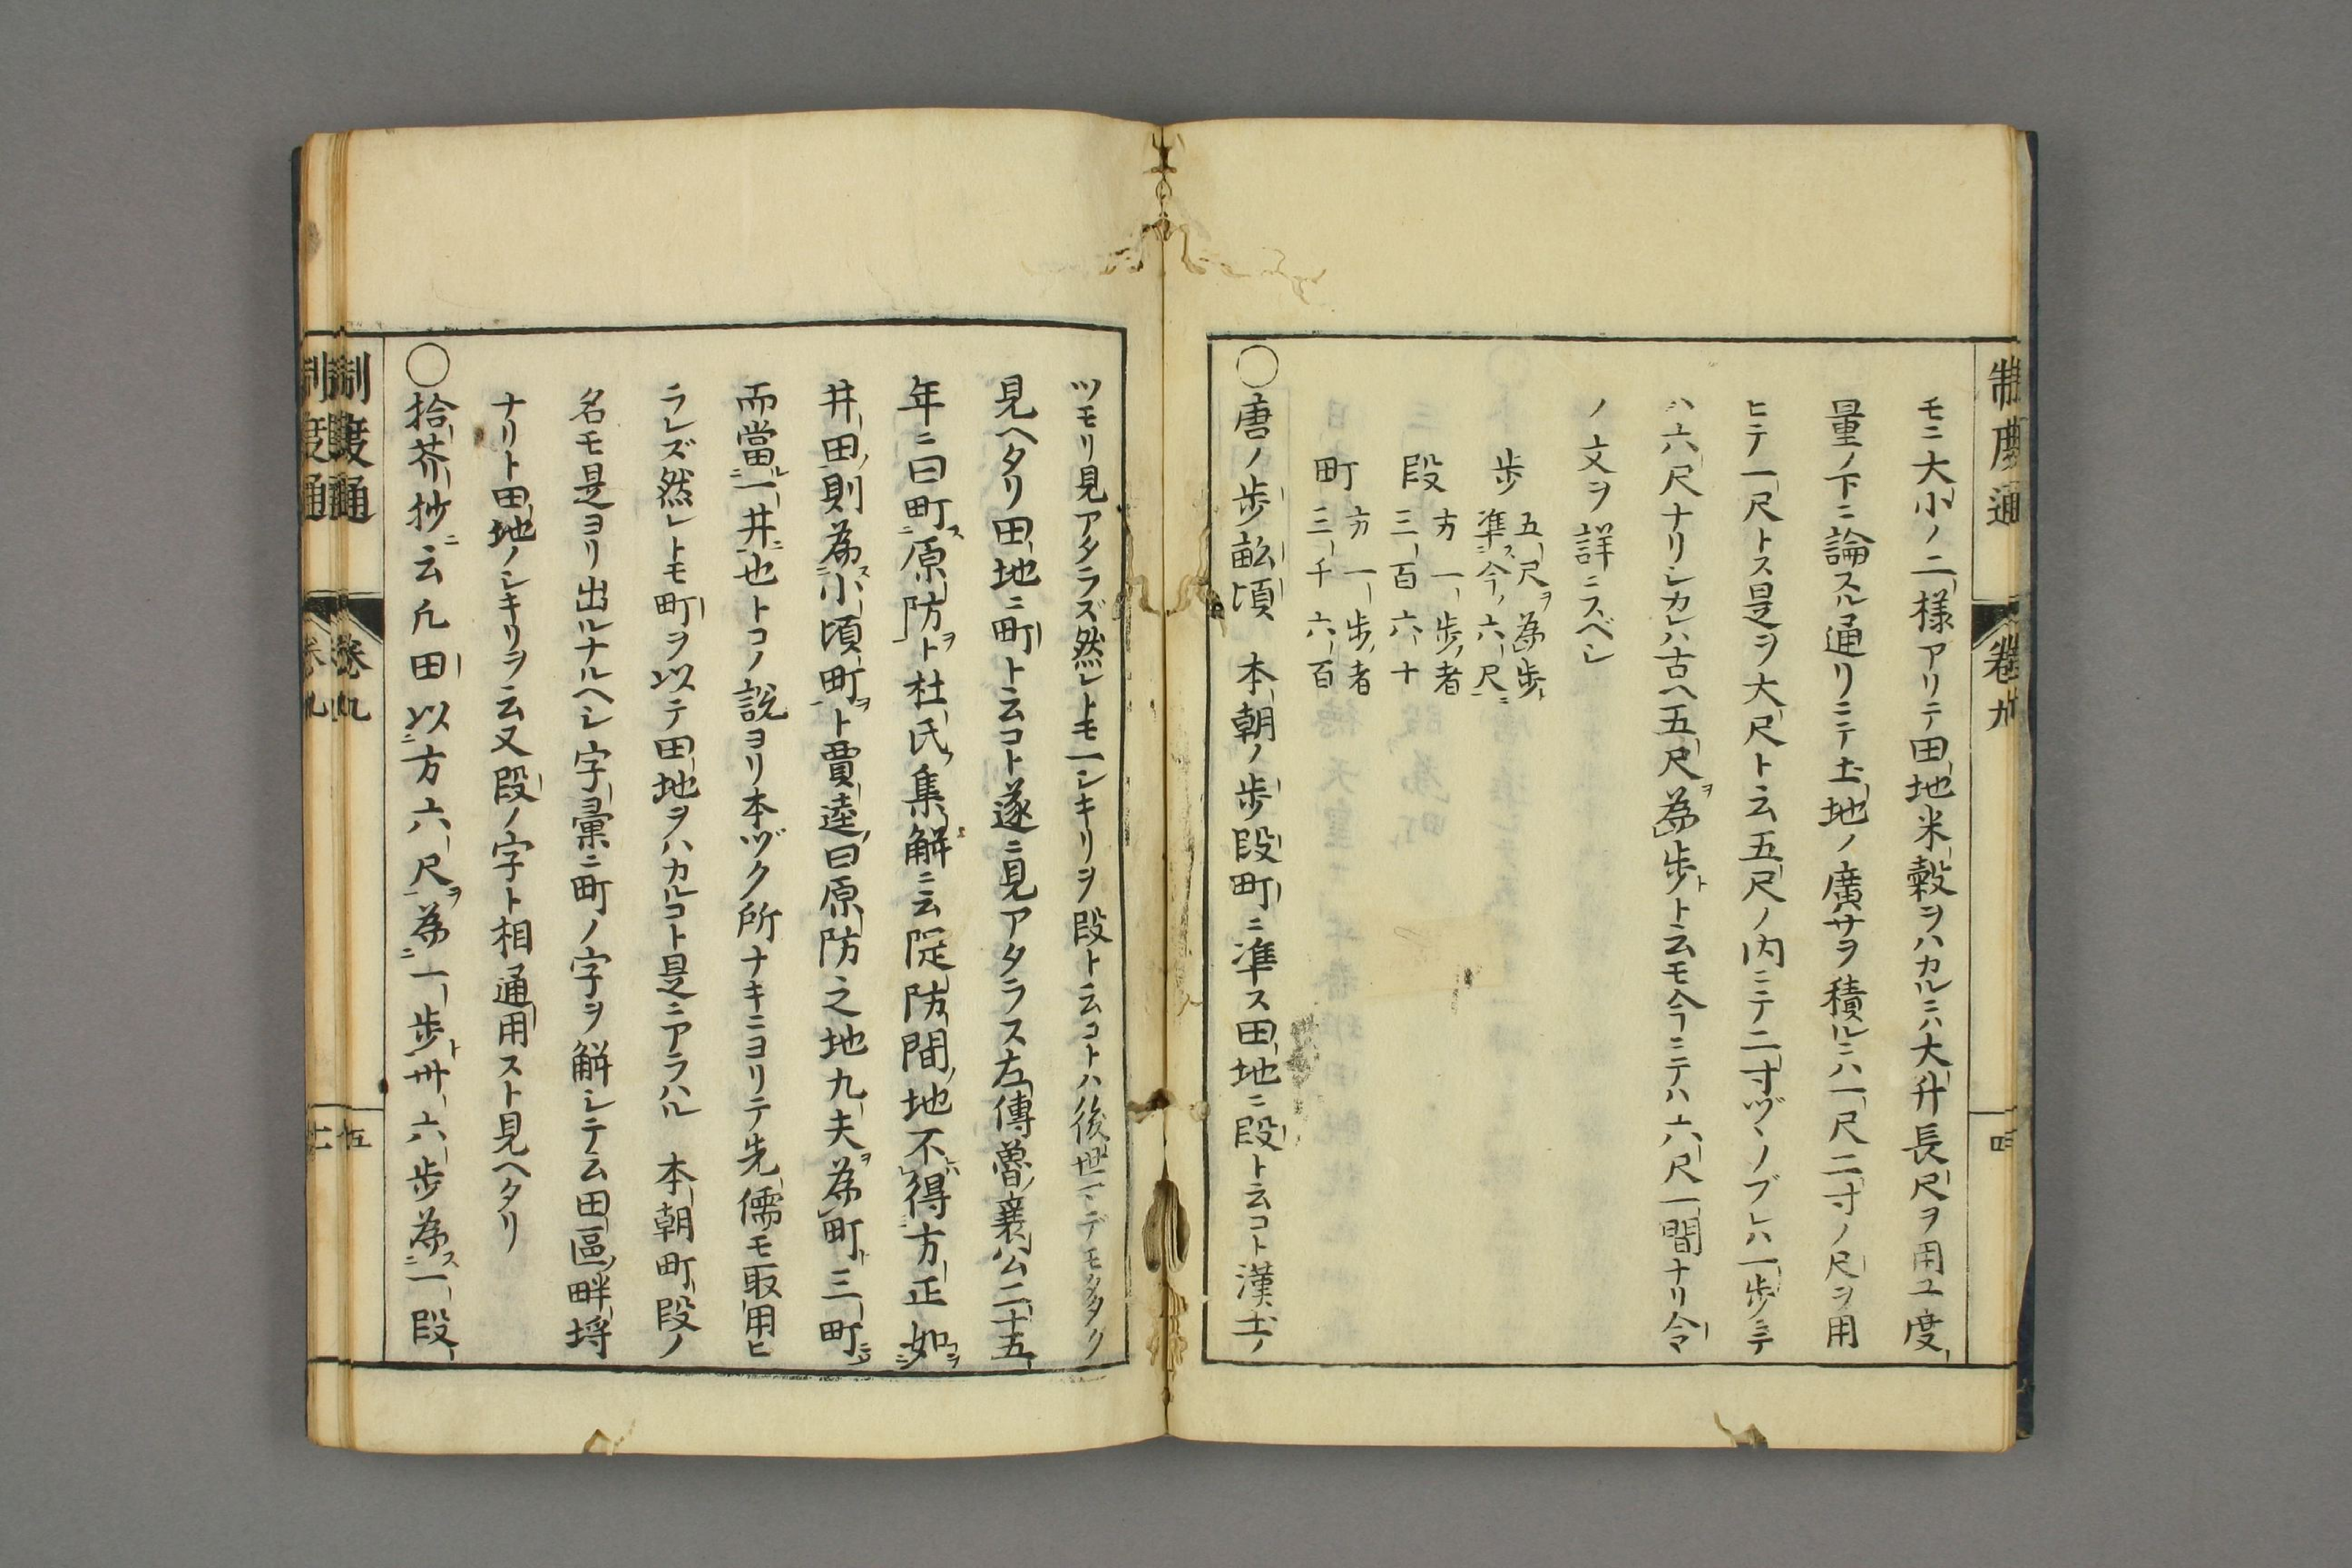 制度通
卷九
四
モニ大小ノ二様アリテ田地米穀ヲハカルニハ大升長尺ヲ用ユ度
量ノ下ニ論スル通リニテ土地ノ廣サヲ積ルニハ一尺二寸ノ尺ヲ用
ヒテ一尺トス是ヲ大尺ト云五尺ノ内ニテ二寸ヅヽノブレハ一歩ニテ
ハ六尺ナリシカレハ古ヘ五尺ヲ為歩ト云モ今ニテハ六尺一間ナリ令
ノ文ヲ詳ニスベシ
歩 五尺ヲ為歩ト
準ス今ノ六尺ニ
段 方一歩者
三百六十
町 方一歩者
三千六百
○唐ノ歩畝頃 本朝ノ歩段町ニ準ス田地ニ段ト云コト漢土ノ
ツモリ見アタラズ然レトモ一シキリヲ段ト云コトハ後世ニ
見ヘタリ田地ニ町ト云コト遂ニ見アタラス左傳魯襄公二十五
年ニ曰町ス原防ヲト杜氏集解ニ云隄防間ノ地不得方正如
井田ノ則為ス小頃町ヲト賈逵曰原防之地九夫ヲ為町ト三町
而當ル一井ニ也トコノ説ヨリ本ヅク所ナキニヨリテ先儒モ取用ヒ
ラレズ然レトモ町ヲ以テ田地ヲハカルコト是ニアラハル 本朝町段ノ
名モ是ヨリ出ルナルヘシ字彙ニ町ノ字ヲ解シテ云田區畔埒
ナリト田地ノシキリヲ云又段ノ字ト相通用スト見ヘタリ
○拾芥抄ニ云凡田以方六尺ヲ為一歩ト卅六歩為ス一段
制度通
卷九
五